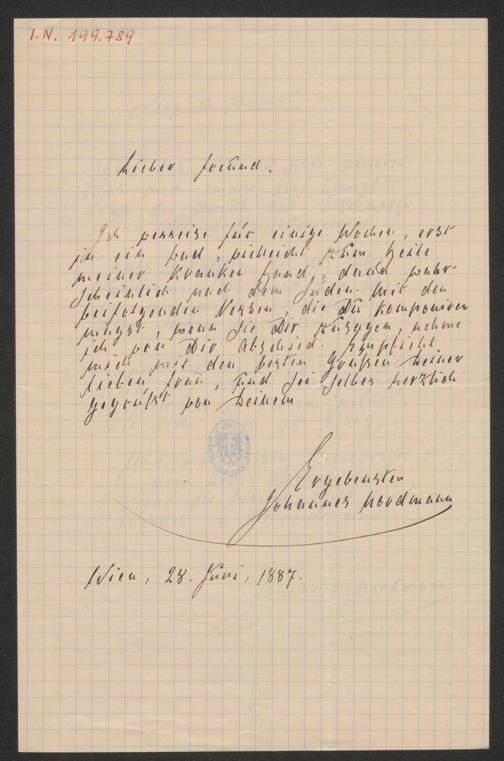 I.N. 199.789
Lieber Freund.
Ich verreise für einige Wochen, erst
in ein Bad, vielleicht zum Heile
meiner kranken Hand, dann wahr-
scheinlich nach dem Süden. Mit den
beifolgenden Versen, die Du komponiren
magst, wenn sie Dir zusagen, nehme
ich von Dir Abschied. Empfiehl
mich mit den besten Grüßen Deiner
lieben Frau, und sei selber herzlich
gegrüßt von Deinem
Ergebensten
Johannes Nordmann
Wien, 28. Juni, 1887.